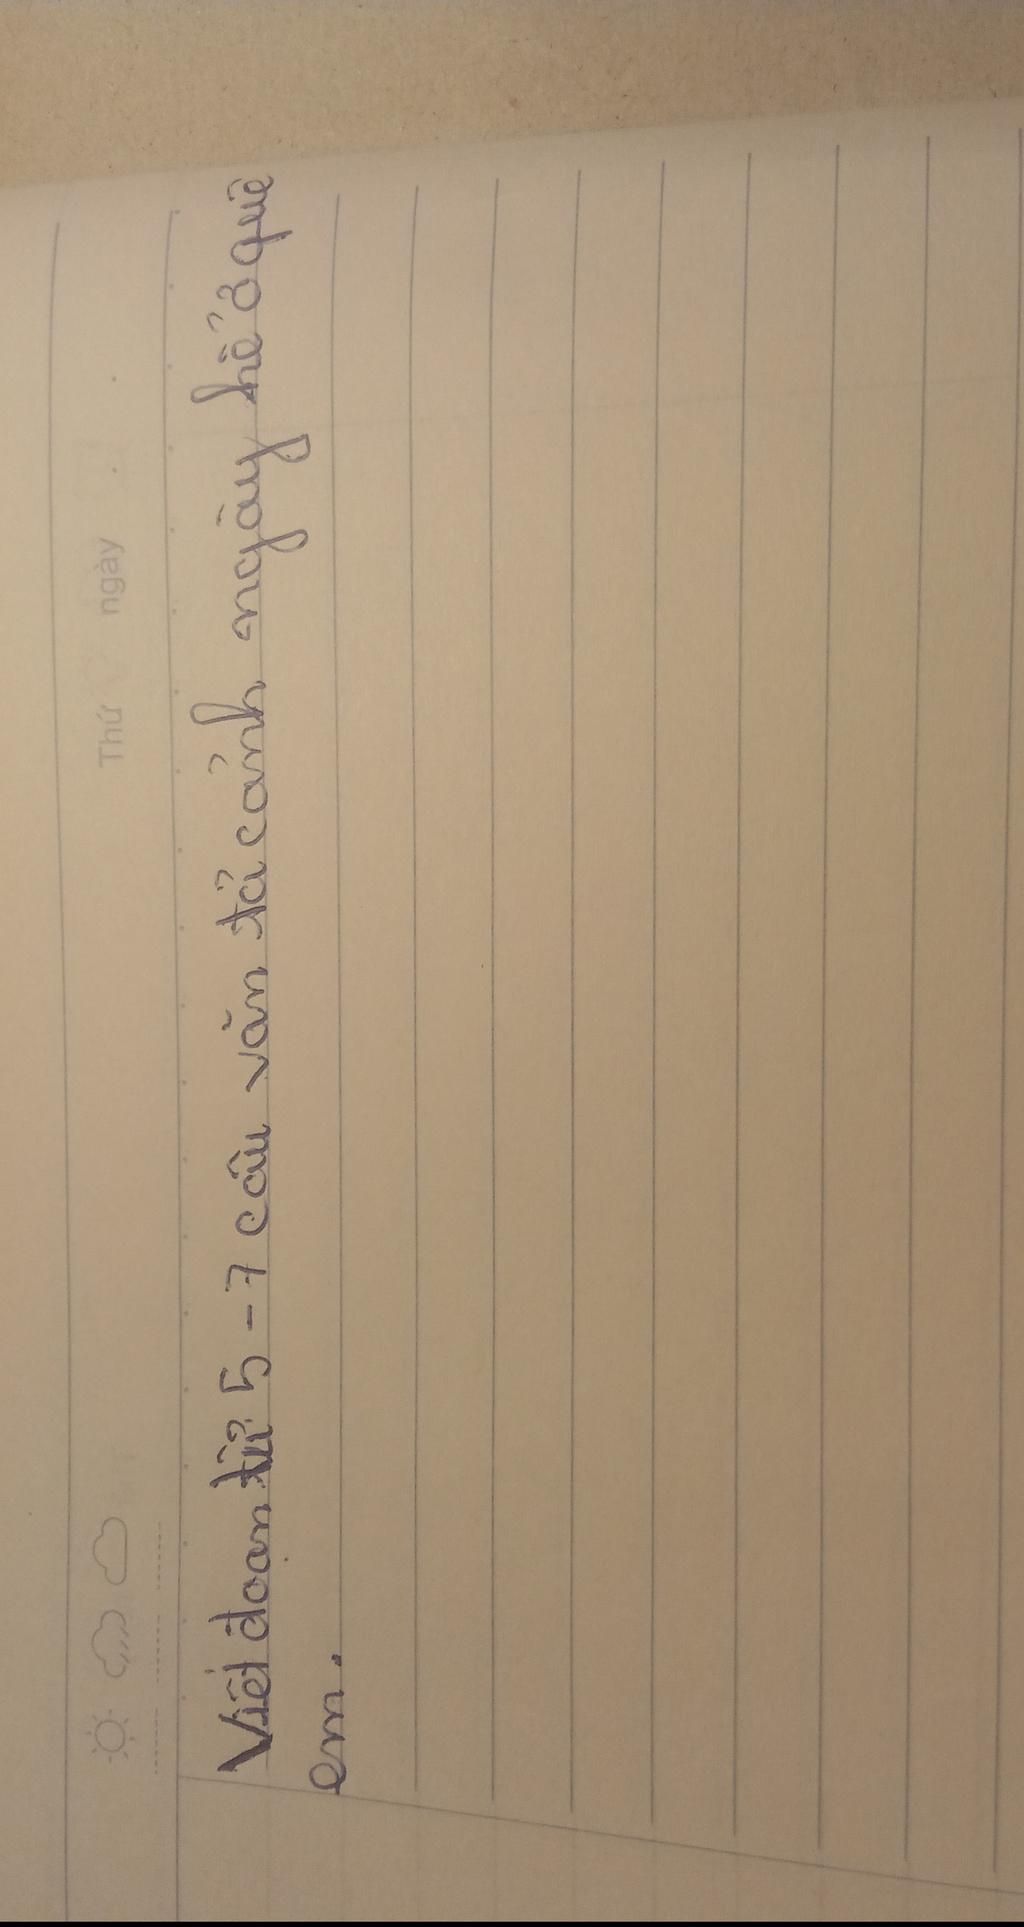 Thứ ngày
Viết đoạn từ 5-7 câu văn tả cảnh ngày hè ở quê
em.